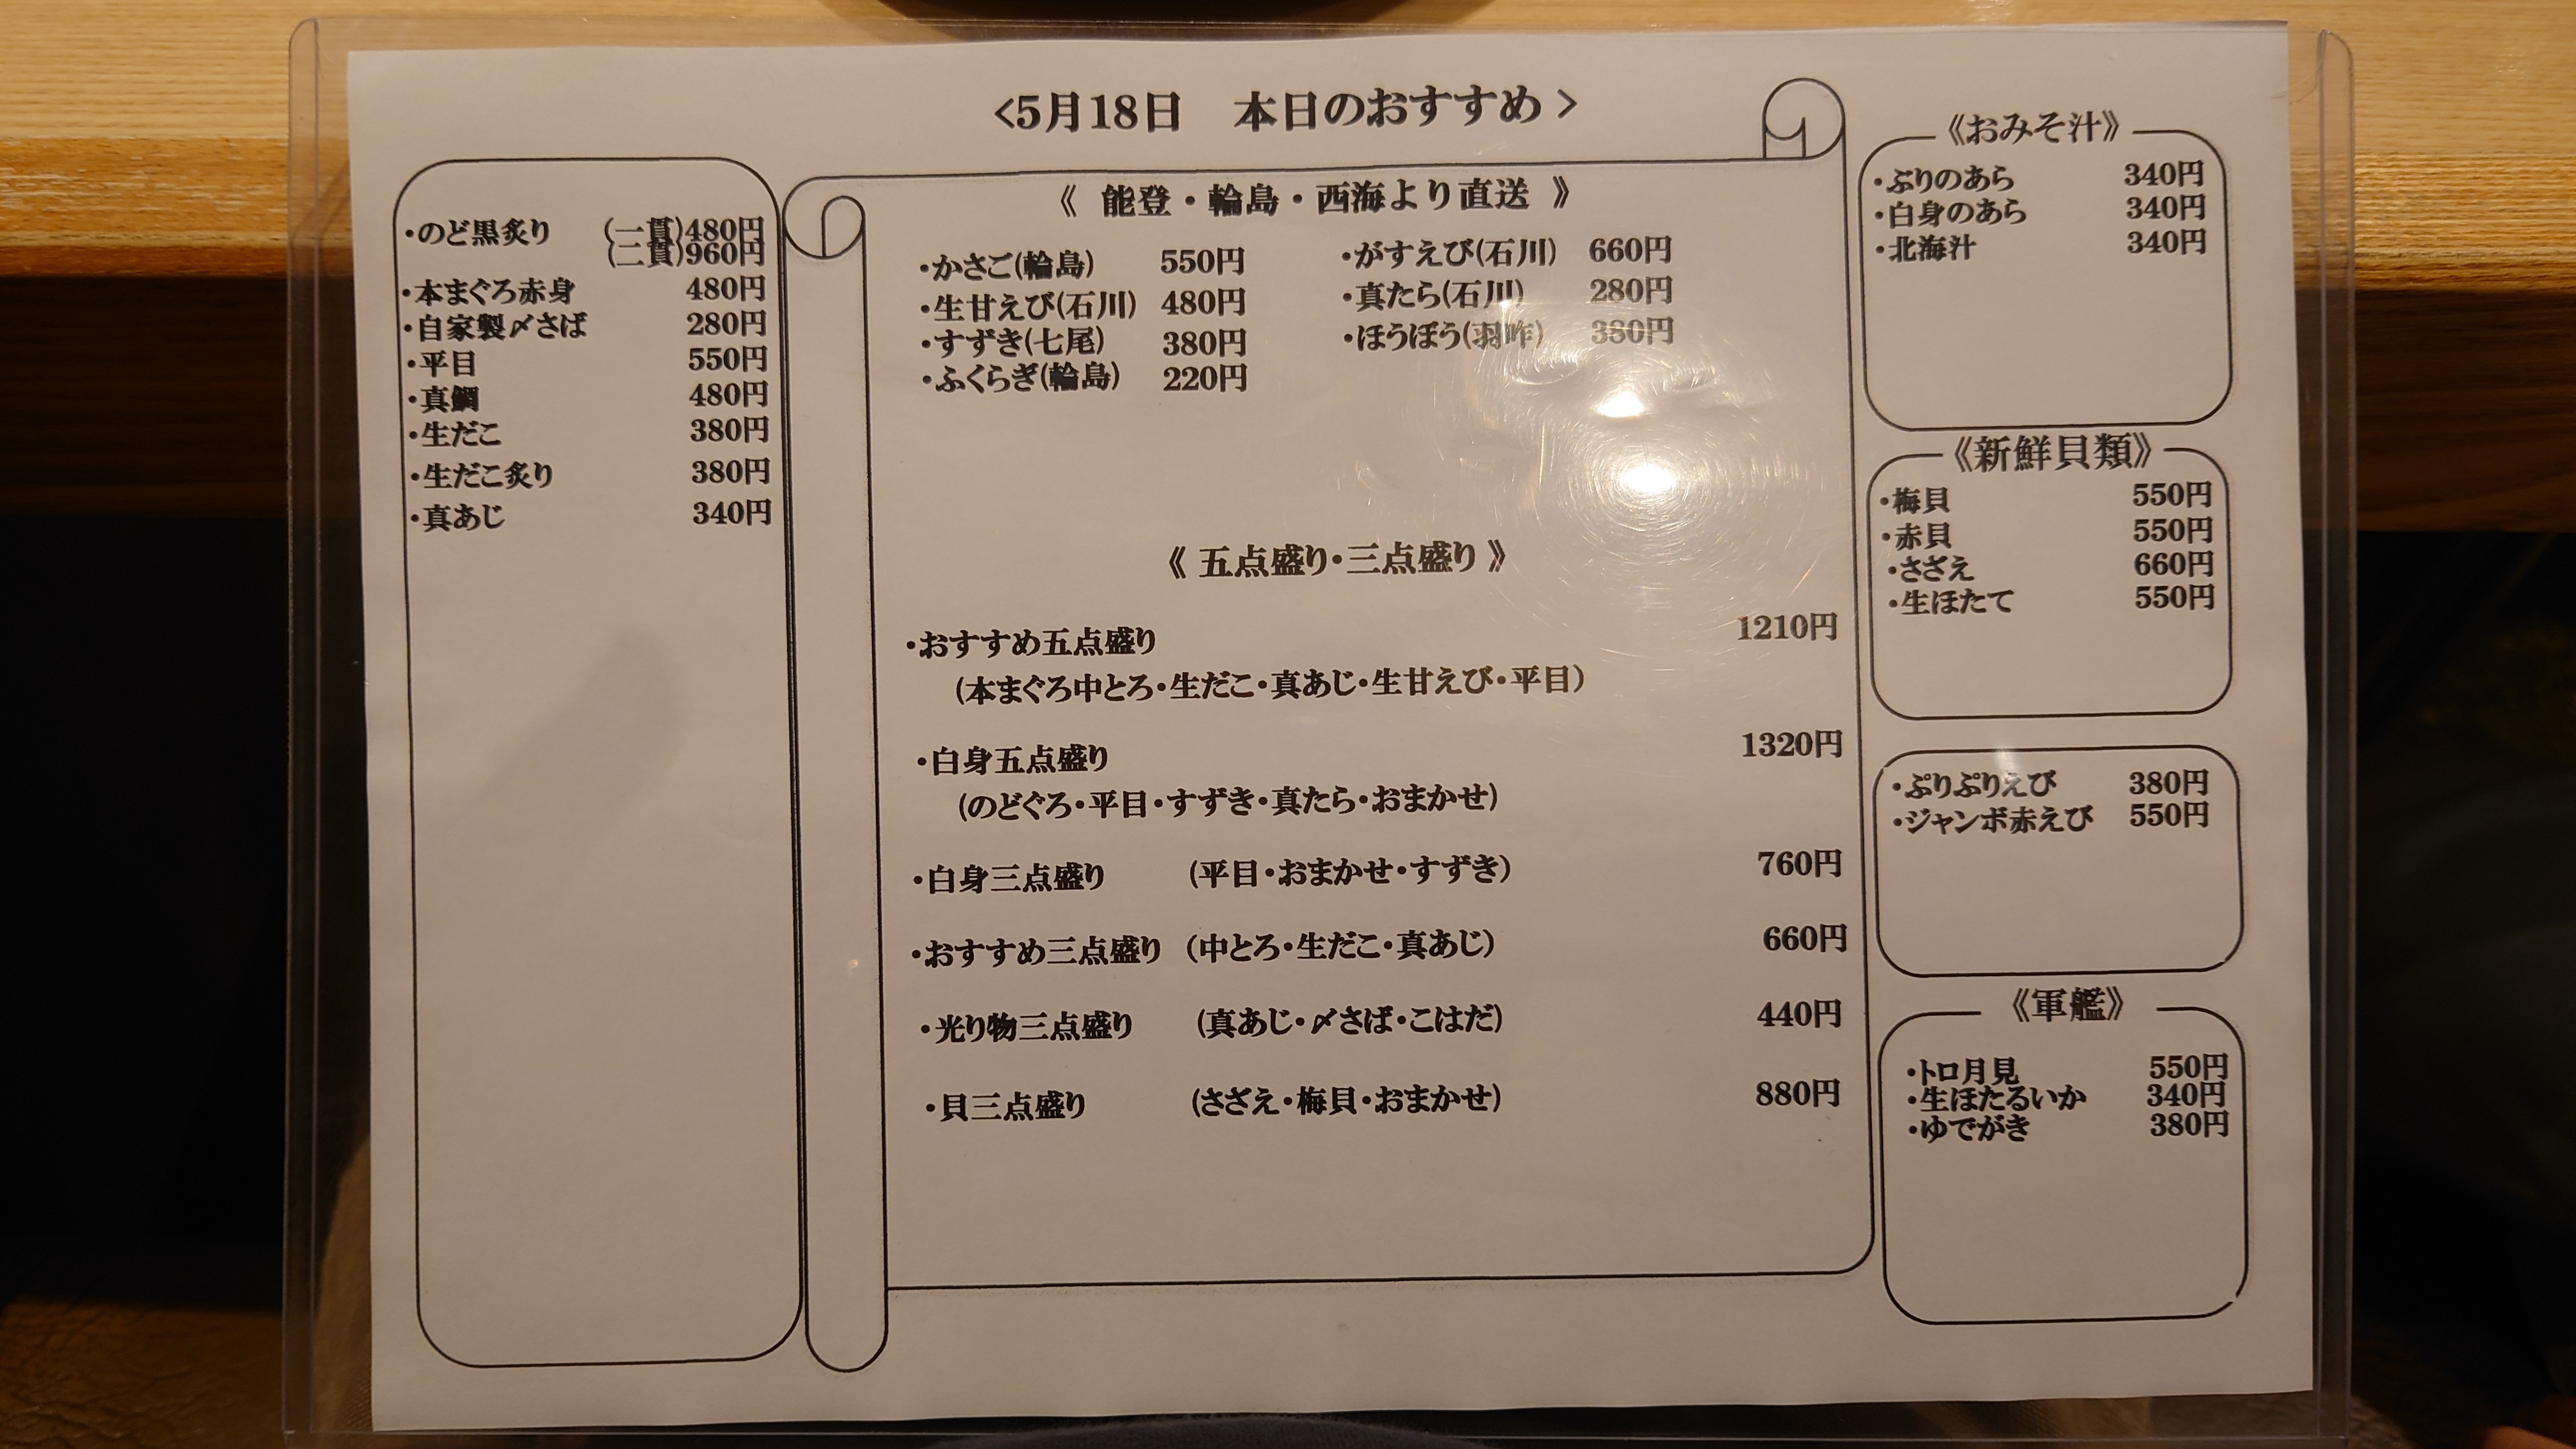 <5月18日　本日のおすすめ>
・のど黒炙り　(一貫)480円
(二貫)960円
・本まぐろ赤身　480円
・自家製〆さば　280円
・平目　550円
・真鯛　480円
・生だこ　380円
・生だこ炙り　380円
・真あじ　340円
《 能登・輪島・西海より直送 》
・かさご(輪島)　550円
・生甘えび(石川)　480円
・すずき(七尾)　380円
・ふくらぎ(輪島)　220円
・がすえび(石川)　660円
・真たら(石川)　280円
・ほうぼう(羽咋)　380円
《 五点盛り・三点盛り 》
・おすすめ五点盛り　1210円
(本まぐろ中とろ・生だこ・真あじ・生甘えび・平目)
・白身五点盛り　1320円
(のどぐろ・平目・すずき・真たら・おまかせ)
・白身三点盛り　(平目・おまかせ・すずき)　760円
・おすすめ三点盛り　(中とろ・生だこ・真あじ)　660円
・光り物三点盛り　(真あじ・〆さば・こはだ)　440円
・貝三点盛り　(さざえ・梅貝・おまかせ)　880円
《おみそ汁》
・ぶりのあら　340円
・白身のあら　340円
・北海汁　340円
《新鮮貝類》
・梅貝　550円
・赤貝　550円
・さざえ　660円
・生ほたて　550円
・ぷりぷりえび　380円
・ジャンボ赤えび　550円
《軍艦》
・トロ月見　550円
・生ほたるいか　340円
・ゆでがき　380円